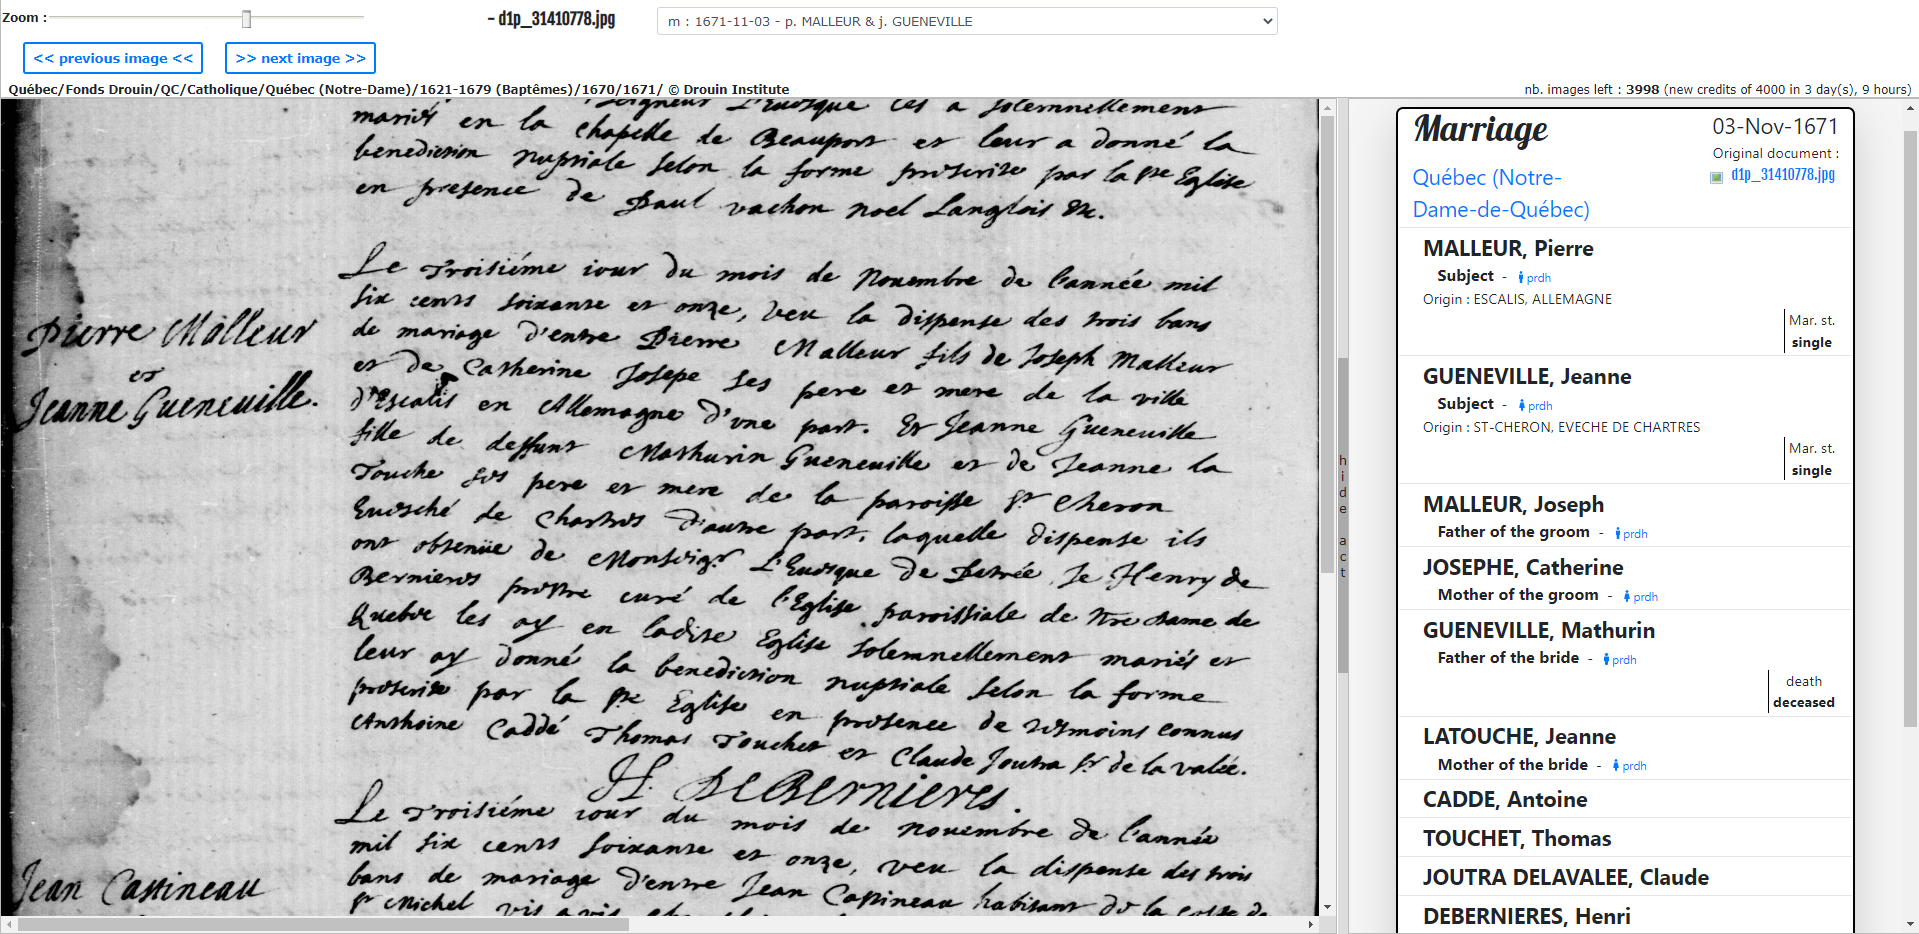 Zoom :
- d1p_31410778.jpg
m : 1671-11-03 - p. MALLEUR & j. GUENEVILLE
<< previous image <<
>> next image >>
Québec/Fonds Drouin/QC/Catholique/Québec (Notre-Dame)/1621-1679 (Baptêmes)/1670/1671/ © Drouin Institute
nb. images left : 3998 (new credits of 4000 in 3 day(s), 9 hours)
Seigneur L'Euesque les a solemnellement
mariés en la chapelle de Beauport et leur a donné la
benediction nuptiale selon la forme prescrite par la Ste Eglise
en presence de Paul vachon noel Langlois &c.
Pierre Malleur
et
Jeanne Gueneuille.
Le troisiéme iour du mois de Nouembre de l'année mil
six cents soixante et onze, veu la dispense des trois bans
de mariage d'entre Pierre Malleur fils de Joseph Malleur
et de Catherine Josepe ses pere et mere de la ville
d'Escalis en Allemagne d'vne part. Et Jeanne Gueneuille
fille de deffunt Mathurin Gueneuille et de Jeanne la
Touche ses pere et mere de la paroisse St Cheron
Euesché de Chartres d'autre part, laquelle dispense ils
ont obtenüe de Monseigr L'Euesque de Petrée, Je Henry de
Bernieres prestre curé de l'Eglise paroissiale de Nre dame de
Quebec les ay en ladite Eglise solemnellement mariés et
leur ay donné la benediction nuptiale selon la forme
prescrite par la Ste Eglise en presence de tesmoins connus
Anthoine Caddé Thomas Touchet et Claude Joutra Sr de la valée.
H. DeBernieres.
Jean Cassineau
Le troisiéme iour du mois de nouembre de l'année
mil six cents soixante et onze, veu la dispense des trois
bans de mariage d'entre Jean Cassineau habitant de la coste de
St Michel vis a vis
hide act
Marriage
03-Nov-1671
Original document :
d1p_31410778.jpg
Québec (Notre-
Dame-de-Québec)
MALLEUR, Pierre
Subject - prdh
Origin : ESCALIS, ALLEMAGNE
Mar. st.
single
GUENEVILLE, Jeanne
Subject - prdh
Origin : ST-CHERON, EVECHE DE CHARTRES
Mar. st.
single
MALLEUR, Joseph
Father of the groom - prdh
JOSEPHE, Catherine
Mother of the groom - prdh
GUENEVILLE, Mathurin
Father of the bride - prdh
death
deceased
LATOUCHE, Jeanne
Mother of the bride - prdh
CADDE, Antoine
TOUCHET, Thomas
JOUTRA DELAVALEE, Claude
DEBERNIERES, Henri